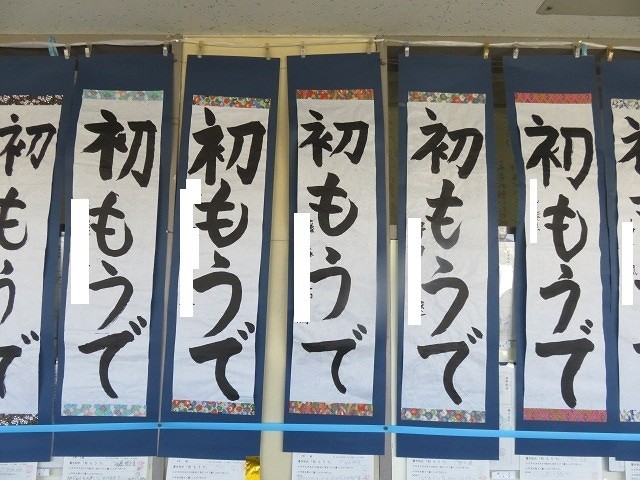 初もうで
初もうで
初もうで
初もうで
初もうで
初もうで